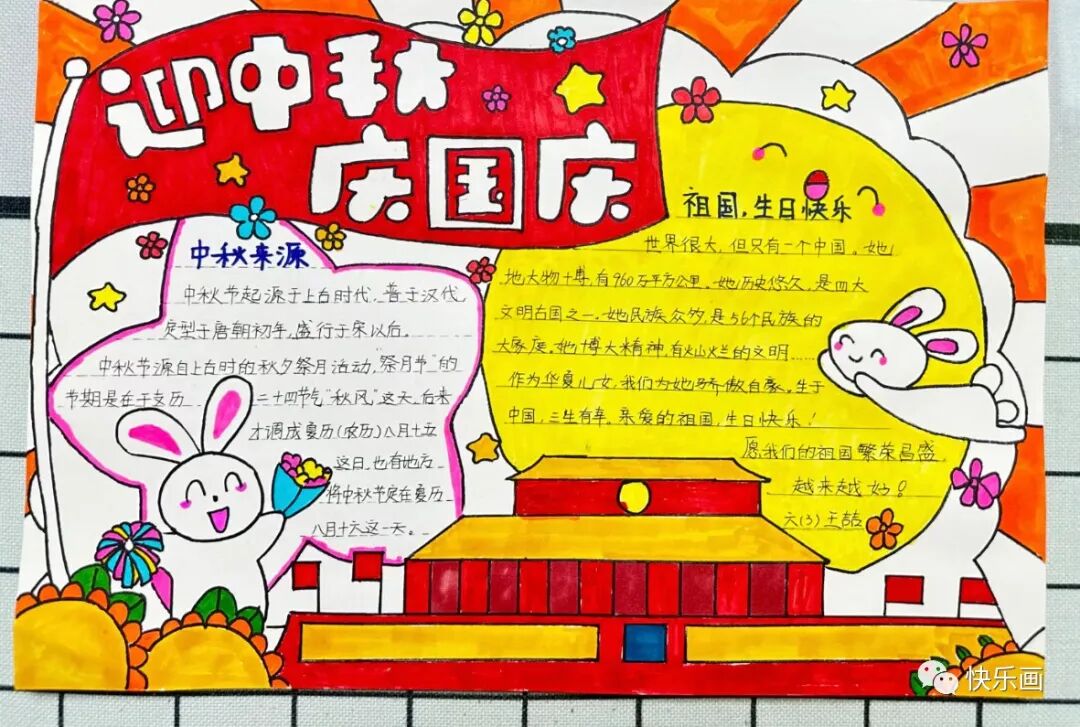 迎中秋
庆国庆
中秋来源
中秋节起源于上古时代，普于汉代，
定型于唐朝初年，盛行于宋以后。
中秋节源自上古时的秋夕祭月活动，“祭月节”的
节期是在干支历 二十四节气“秋风”这天，后来
才调成夏历(农历)八月十五
这日，也有地方
将中秋节定在夏历
八月十六这一天。
祖国，生日快乐
世界很大，但只有一个中国。她
地大物博，有960万平方公里。她历史悠久，是四大
文明古国之一，她民族众多，是56个民族的
大家庭。她博大精神，有火山烂的文明……
作为华夏儿女，我们为她骄傲自豪。生于
中国，三生有幸。亲爱的祖国，生日快乐！
愿我们的祖国繁荣昌盛
越来越好！
六(3) 王喆
快乐画